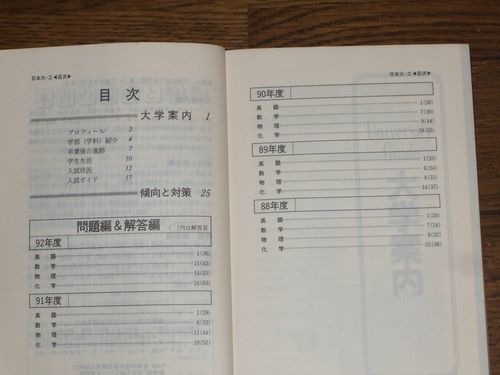 日本大-工◀目次▶
目次
大学案内 1
プロフィール 2
学部(学科)紹介 4
卒業後の進路 7
学生生活 10
入試状況 12
入試ガイド 17
傾向と対策 25
問題編&解答編 ( )内は解答頁
92年度
英語 1(36)
数学 11(43)
物理 14(50)
化学 24(63)
91年度
英語 1(29)
数学 8(33)
物理 11(44)
化学 19(52)
日本大-工◀目次▶
90年度
英語 1(26)
数学 7(30)
物理 9(44)
化学 18(55)
89年度
英語 1(20)
数学 6(24)
物理 8(31)
化学 14(37)
88年度
英語 1(20)
数学 7(24)
物理 9(32)
化学 15(36)